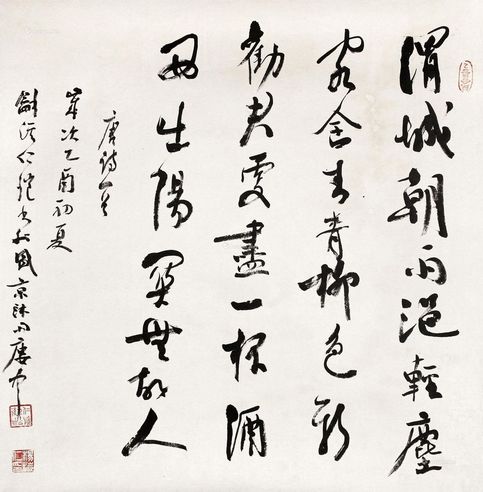 渭城朝雨浥輕塵
客舍青青柳色新
勸君更盡一杯酒
西出陽關無故人
唐詩一首
歲次乙酉初夏
龢溪仁愷書於盛京沐雨廔中